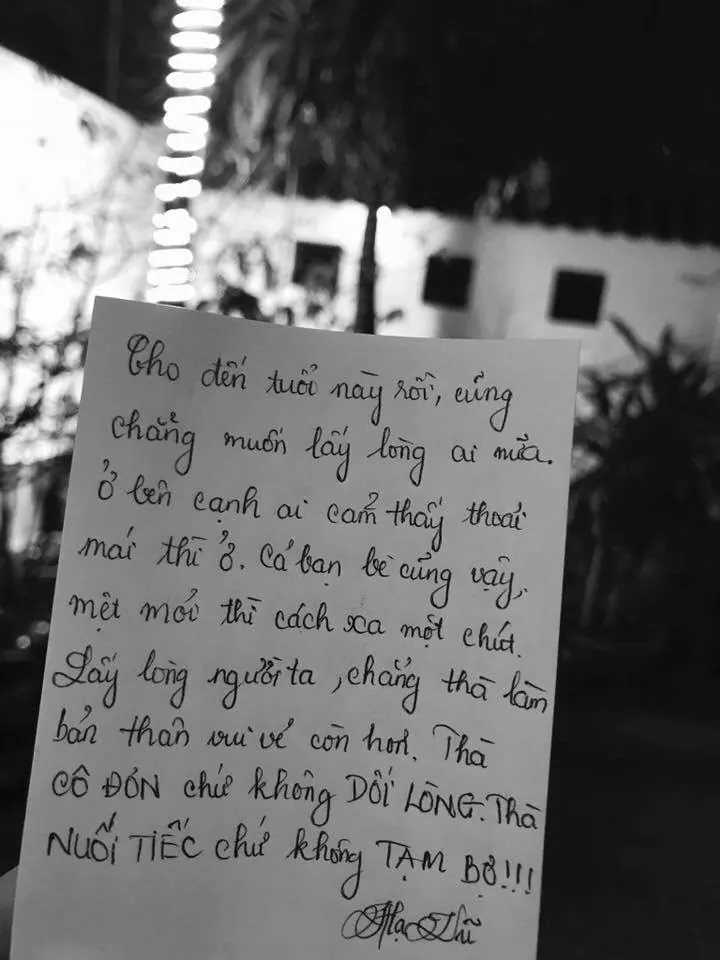 Cho đến tuổi này rồi, cũng
chẳng muốn lấy lòng ai nữa.
Ở bên cạnh ai cảm thấy thoải
mái thì ở. Cả bạn bè cũng vậy,
mệt mỏi thì cách xa một chút.
Lấy lòng người ta, chẳng thà làm
bản thân vui vẻ còn hơn. Thà
CÔ ĐƠN chứ không DỐI LÒNG. Thà
NUỐI TIẾC chứ không TẠM BỢ!!!